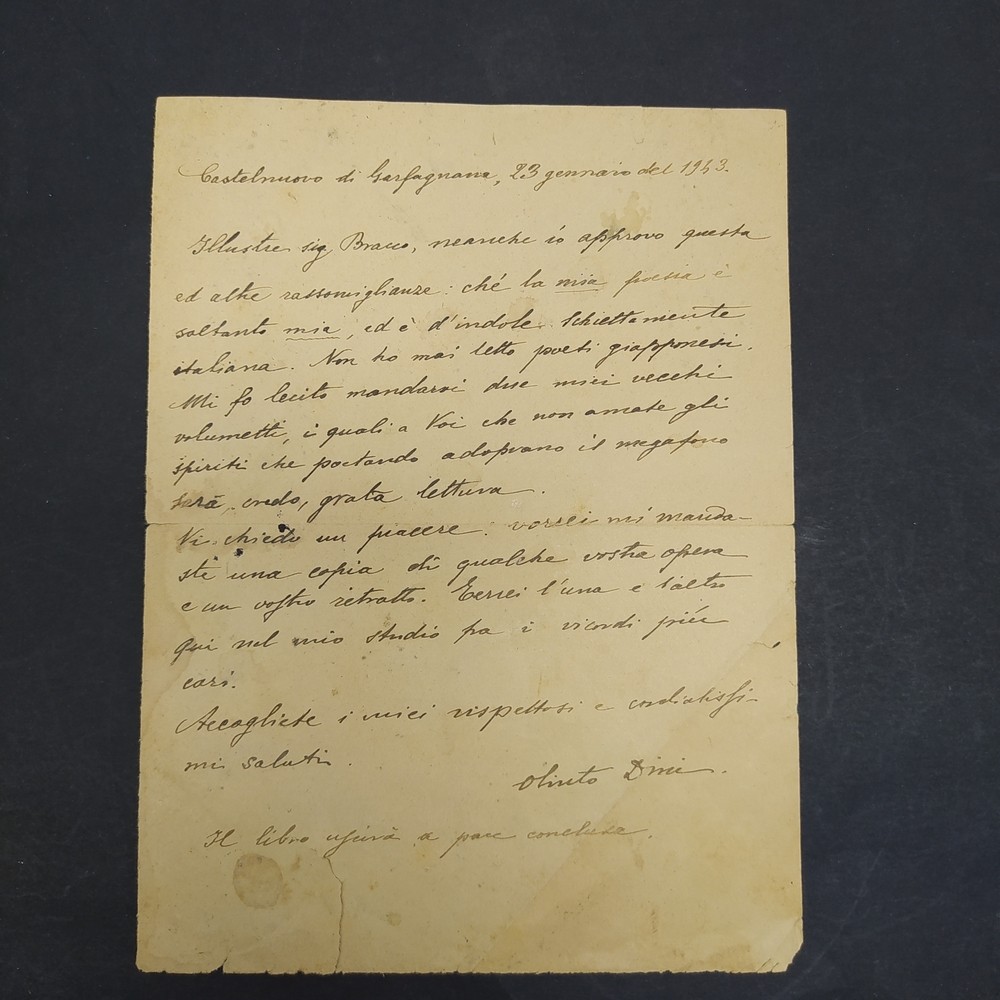 Castelnuovo di Garfagnana, 23 gennaio del 1943.
Illustre sig. Bracco, neanche io approvo questa
ed altre rassomiglianze: ché la mia poesia è
soltanto mia, ed è d'indole schiettamente
italiana. Non ho mai letto poeti giapponesi.
Mi fo lecito mandarvi due miei vecchi
volumetti, i quali a Voi che non amate gli
spiriti che poetando adoprano il megafono
sarà, credo, grata lettura.
Vi chiedo un piacere: vorrei mi manda-
ste una copia di qualche vostra opera
e un vostro ritratto. Terrei l'una e l'altro
qui nel mio studio fra i ricordi più
cari.
Accogliete i miei rispettosi e cordialissi-
mi saluti.
Olinto Dini.
Il libro uscirà a pace conclusa.